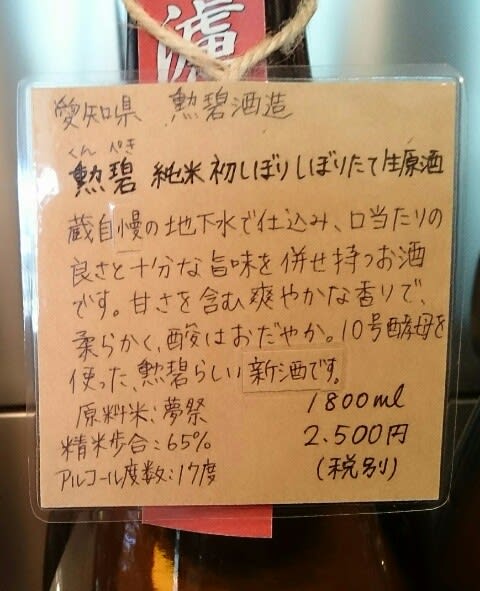 濾
愛知県 勲碧酒造
くん ぺき
勲碧 純米初しぼりしぼりたて生原酒
蔵自慢の地下水で仕込み、口当たりの
良さと十分な旨味を併せ持つお酒
です。甘さを含む爽やかな香りで、
柔らかく、酸はおだやか。10号酵母を
使った、勲碧らしい新酒です。
原料米:夢祭 1800ml
精米歩合:65% 2.500円
アルコール度数:17度 (税別)